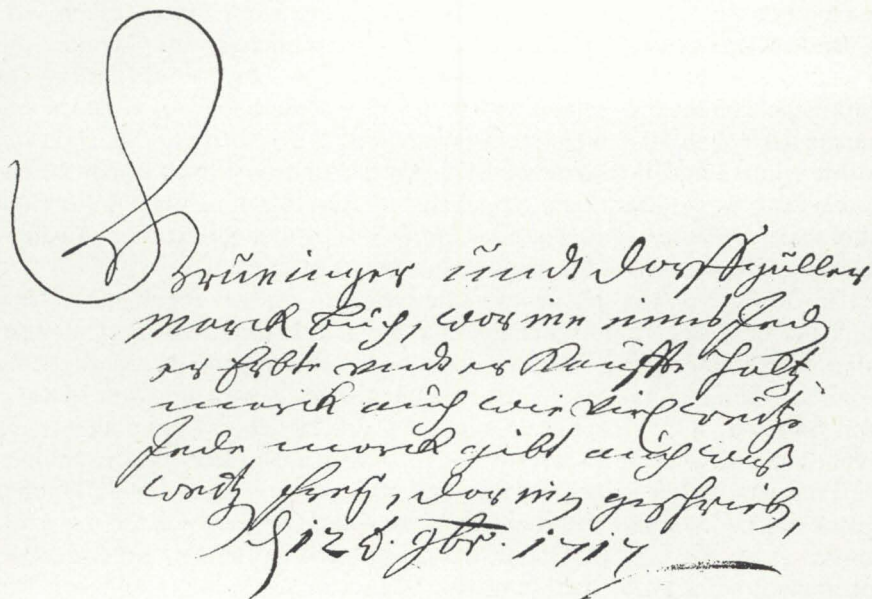 Grüninger undt Dorffgüller
Marck buch, worinn eines Jed
er Erbte undt er Kauffte Holtz
marck auch wie viel
Jede marck gibt auch waß
darinn geschrieb,
d 12 t. 9br. 1717